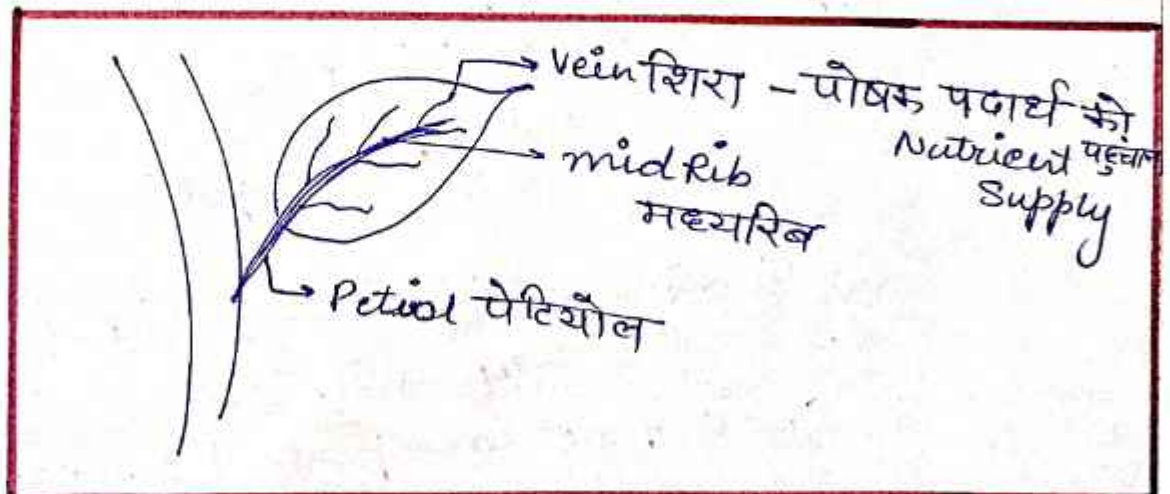 Vein शिरा - पोषक पदार्थ को
पहुंचान
Nutrient
Supply
midRib
मध्यरिब
Petiol पेटियॉल